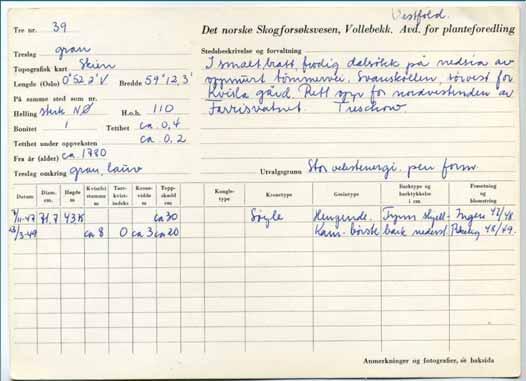 Vestfold.
Tre nr. 39
Det norske Skogforsøksvesen, Vollebekk. Avd. for planteforedling
Treslag gran
Stedsbeskrivelse og forvaltning
Topografisk kart Skien
I smalt, bratt, frodig dalsökk på nedsia av
Lengde (Oslo) 0°52,2'V Bredde 59°12,3'
oppmurt tömmervei. Svanskollen, sørvest for
På samme sted som nr.
Kvisla gård. Rett syr for nordvestenden av
Helling sterk NØ H.o.h. 110
Farrisvatnet. Treschow
Bonitet 1 Tetthet ca 0,4
Tetthet under oppveksten ca 0,2
Fra år (alder) ca 1780
Treslag omkring gran, lauv
Utvalgsgrunn Stor vekstenergi. pen form
Datum Diam. cm. Høgde m Kvistfri stamme m Tørrkvist-indeks Kronevidde m Toppskudd cm Kongletype Kronetype Greintype Barktype og barktykkelse i cm. Frøsetning og blomstring
/11-47 71.7 43 ca 30 Søyle Hengende. Tynn skjell- Ingen 47/48
/3-49 ca 8 0 ca 3 ca 20 Kam-börste bark nederst. 48/49.
Anmerkninger og fotografier, se baksida